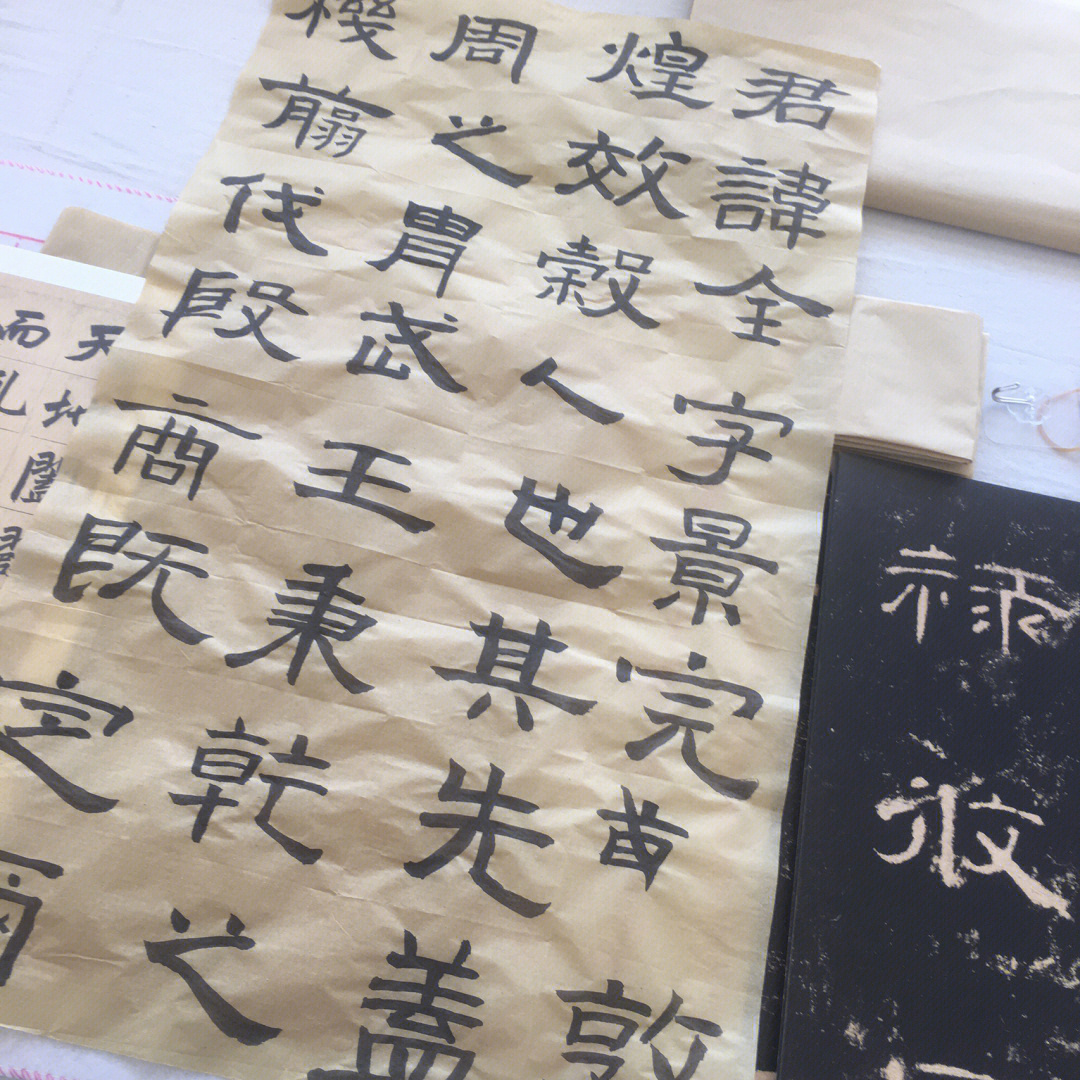 君諱全字景完苗敦
煌效穀人也其先蓋
周之胄武王秉乾之
機翦伐殷商既定爾
天地
而乱